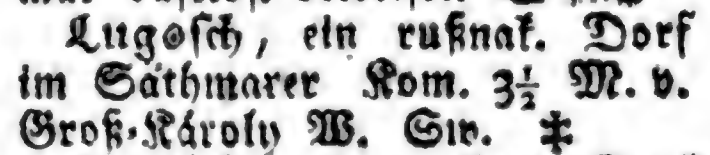 Lugosch, ein rußnak. Dorf
im Sathmarer Kom. 3½ M. v.
Groß-Károly W. Sw. ‡